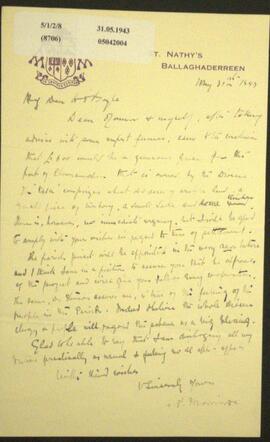 5/1/2/8
(8706)
31.05.1943
05042004
ST. NATHY'S
BALLAGHADERREEN
May 31st 1943
My Dear Mr Boyle
Dean Connor & myself, after taking
advice with some expert farmers, came to the conclusion
that £600 would be a generous for the
part of that is owned by the Diocese
a
small piece of a small lake and some
There is, however, no immediate urgency, but I'd be glad
to comply with your wishes in regard to time of settlement.
The parish priest will be appointed in the very near future
and I think I am in a position to assure you that he approves
of the project and will give you full co-operation.
The same, as assures me, is true of the feeling of the
people in the Parish. Indeed I believe the whole Diocese
clergy & people will regard the scheme as a big blessing.
Glad to be able to say that I am all my
duties practically as usual & feeling no ill after-effects
With kind wishes
Sincerely yours
+ P. Morrisroe